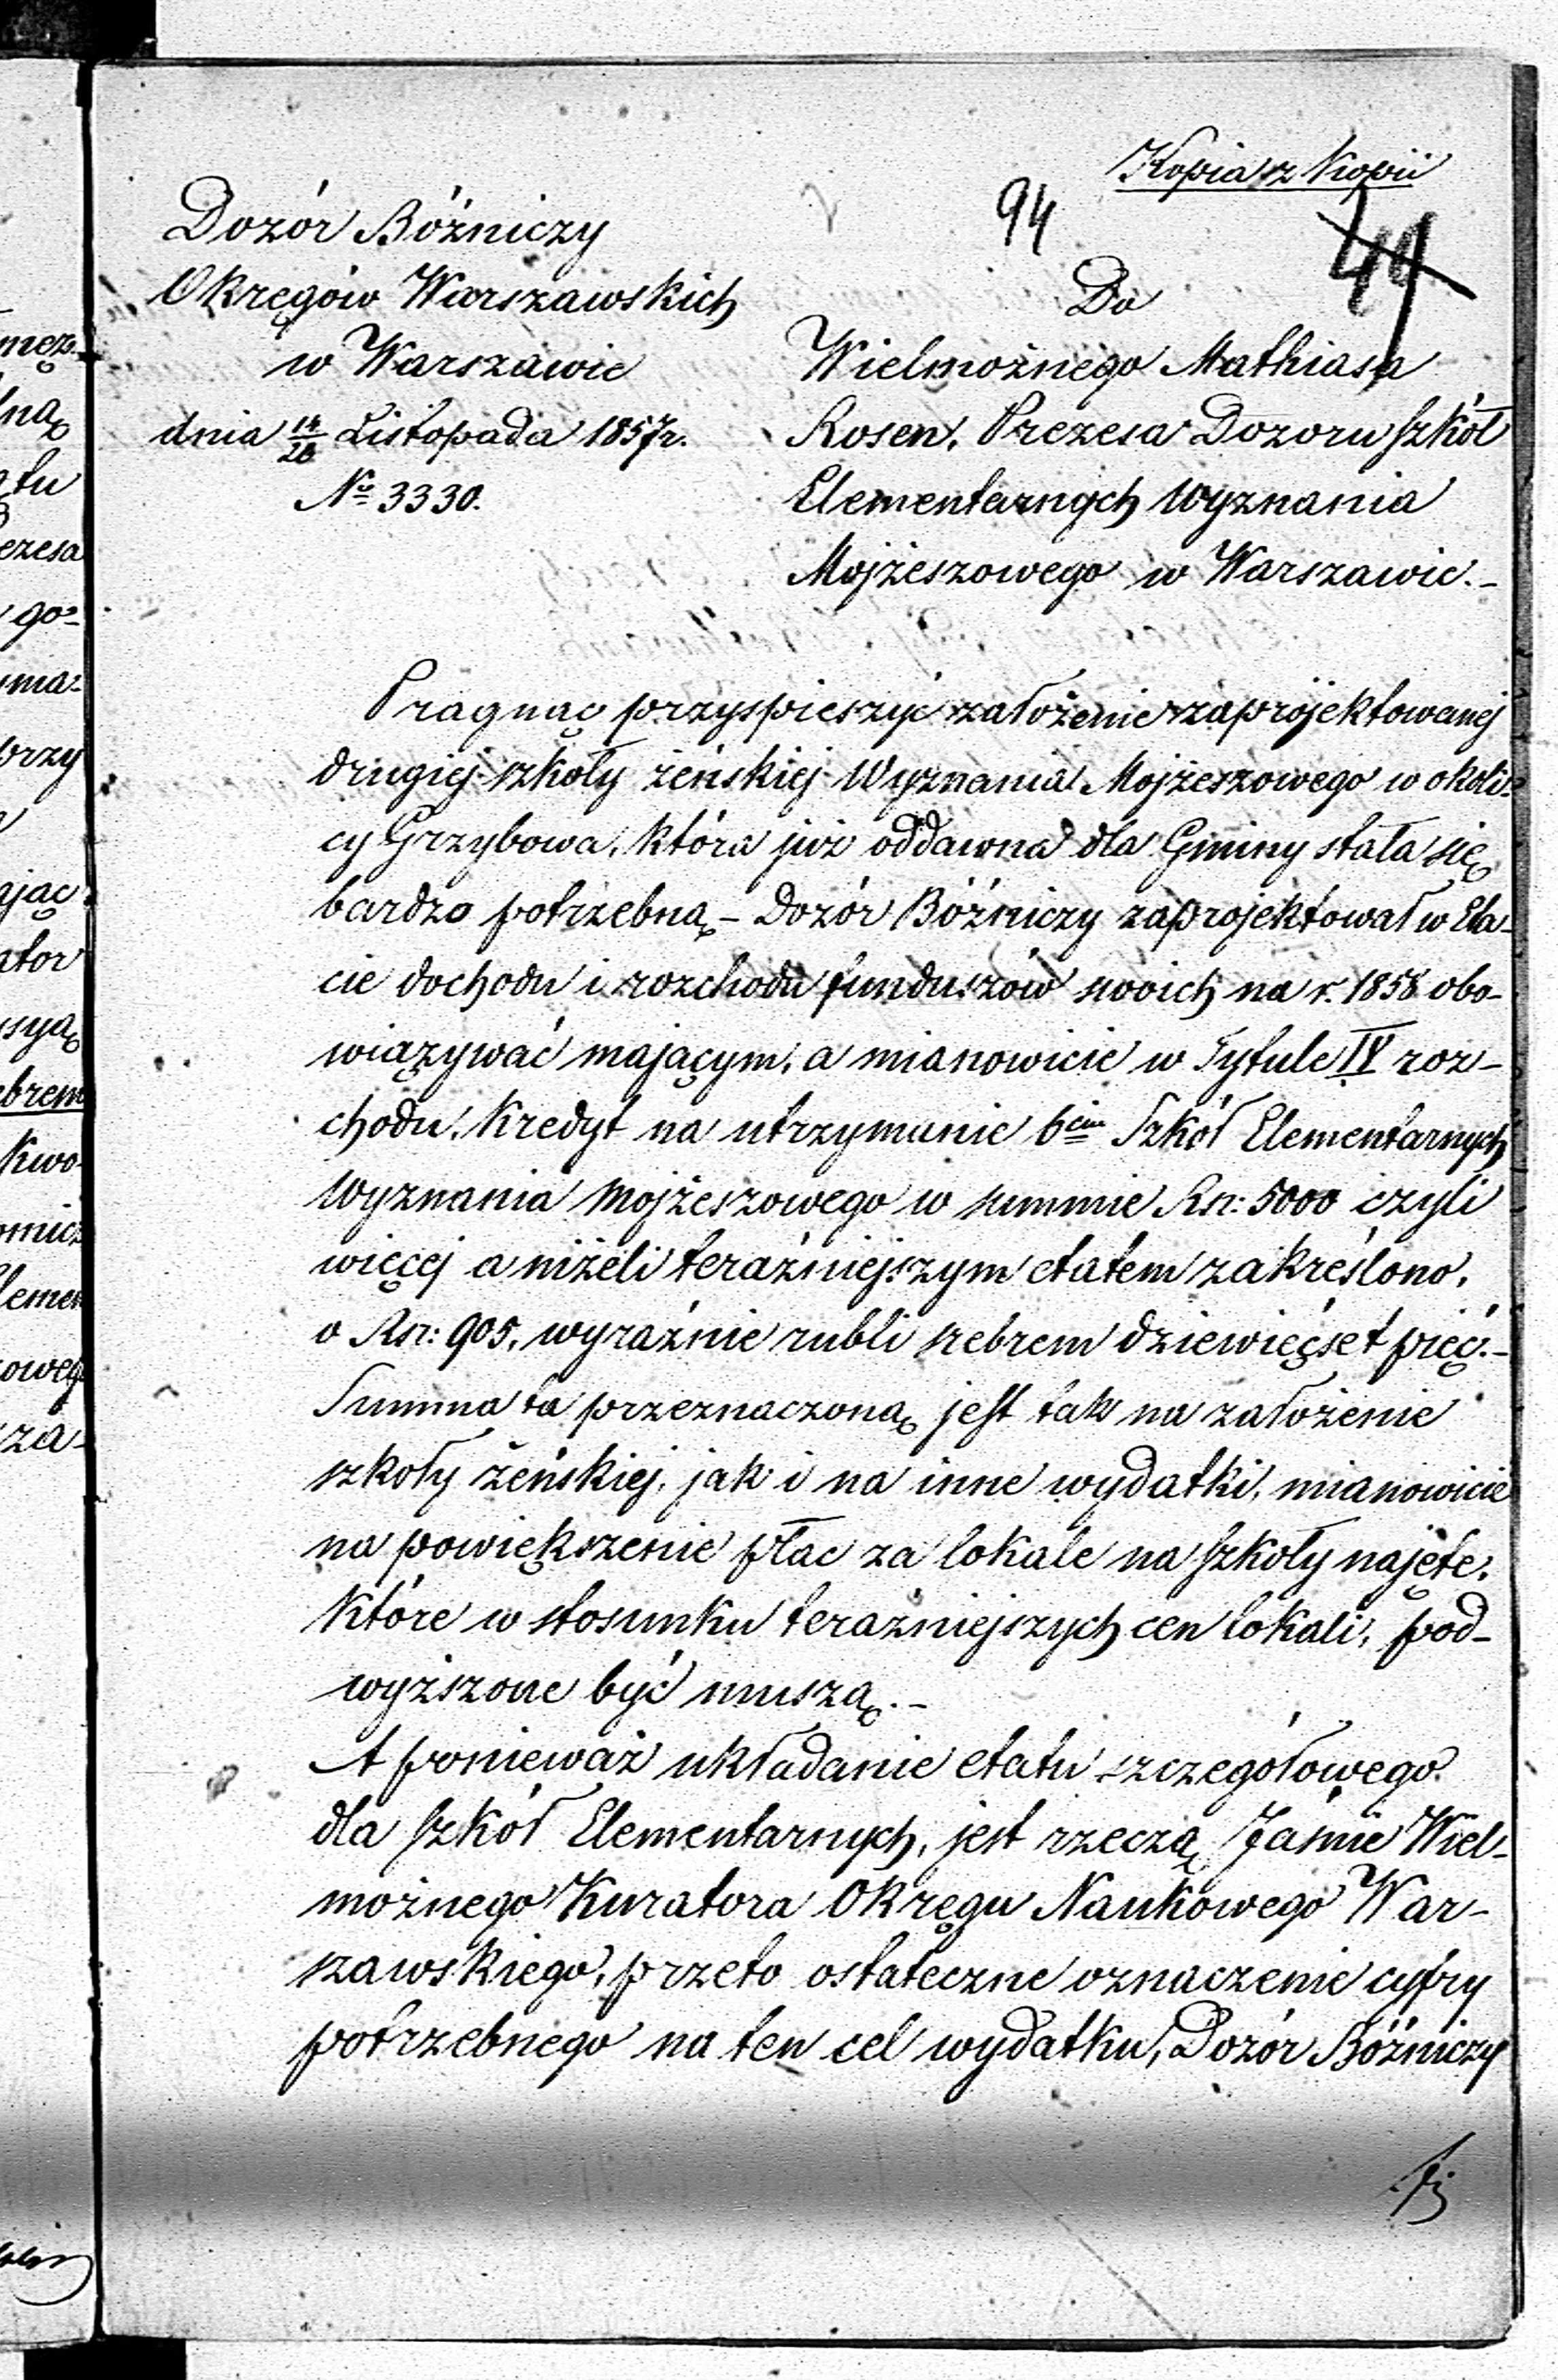 Kopia z Kopii
94
49
Dozór Bóżniczy
Okręgów Warszawskich
w Warszawie
dnia 14/26 Listopada 1857r.
No 3330.
Do
Wielmożnego Mathiasa
Rosen, Prezesa Dozoru szkół
Elementarnych Wyznania
Mojżeszowego w Warszawie.-
Pragnąc przyspieszyć założenie zaprojektowanej
drugiej szkoły żeńskiej Wyznania Mojżeszowego w okoli-
cy Grzybowa, która już oddawna dla Gminy stała się
bardzo potrzebną - Dozór Bóźniczy zaprojektował w Eta-
cie dochodu i rozchodu funduszów swoich na r. 1858 obo-
wiązywać mającym, a mianowicie w Tytule IV roz-
chodu, Kredyt na utrzymanie 6ciu Szkół Elementarnych
Wyznania Mojżeszowego w summie Rsr: 5000 czyli
więcej a niżeli teraźniejszym etatem zakreślono,
o Rsr: 905, wyraźnie rubli srebrem dziewięćset pięć.-
Summa ta przeznaczoną jest tak na założenie
szkoły żeńskiej, jak i na inne wydatki, mianowicie
na powiększenie płac za lokale na szkoły najęte,
które w stosunku teraźniejszych cen lokali, pod-
wyższone być muszą.-
A ponieważ układanie etatu szczegółowego
dla szkół Elementarnych, jest rzeczą Jaśnie Wiel-
możnego Kuratora Okręgu Naukowego War-
szawskiego, przeto ostateczne oznaczenie cyfry
potrzebnego na ten cel wydatku, Dozór Bóżniczy